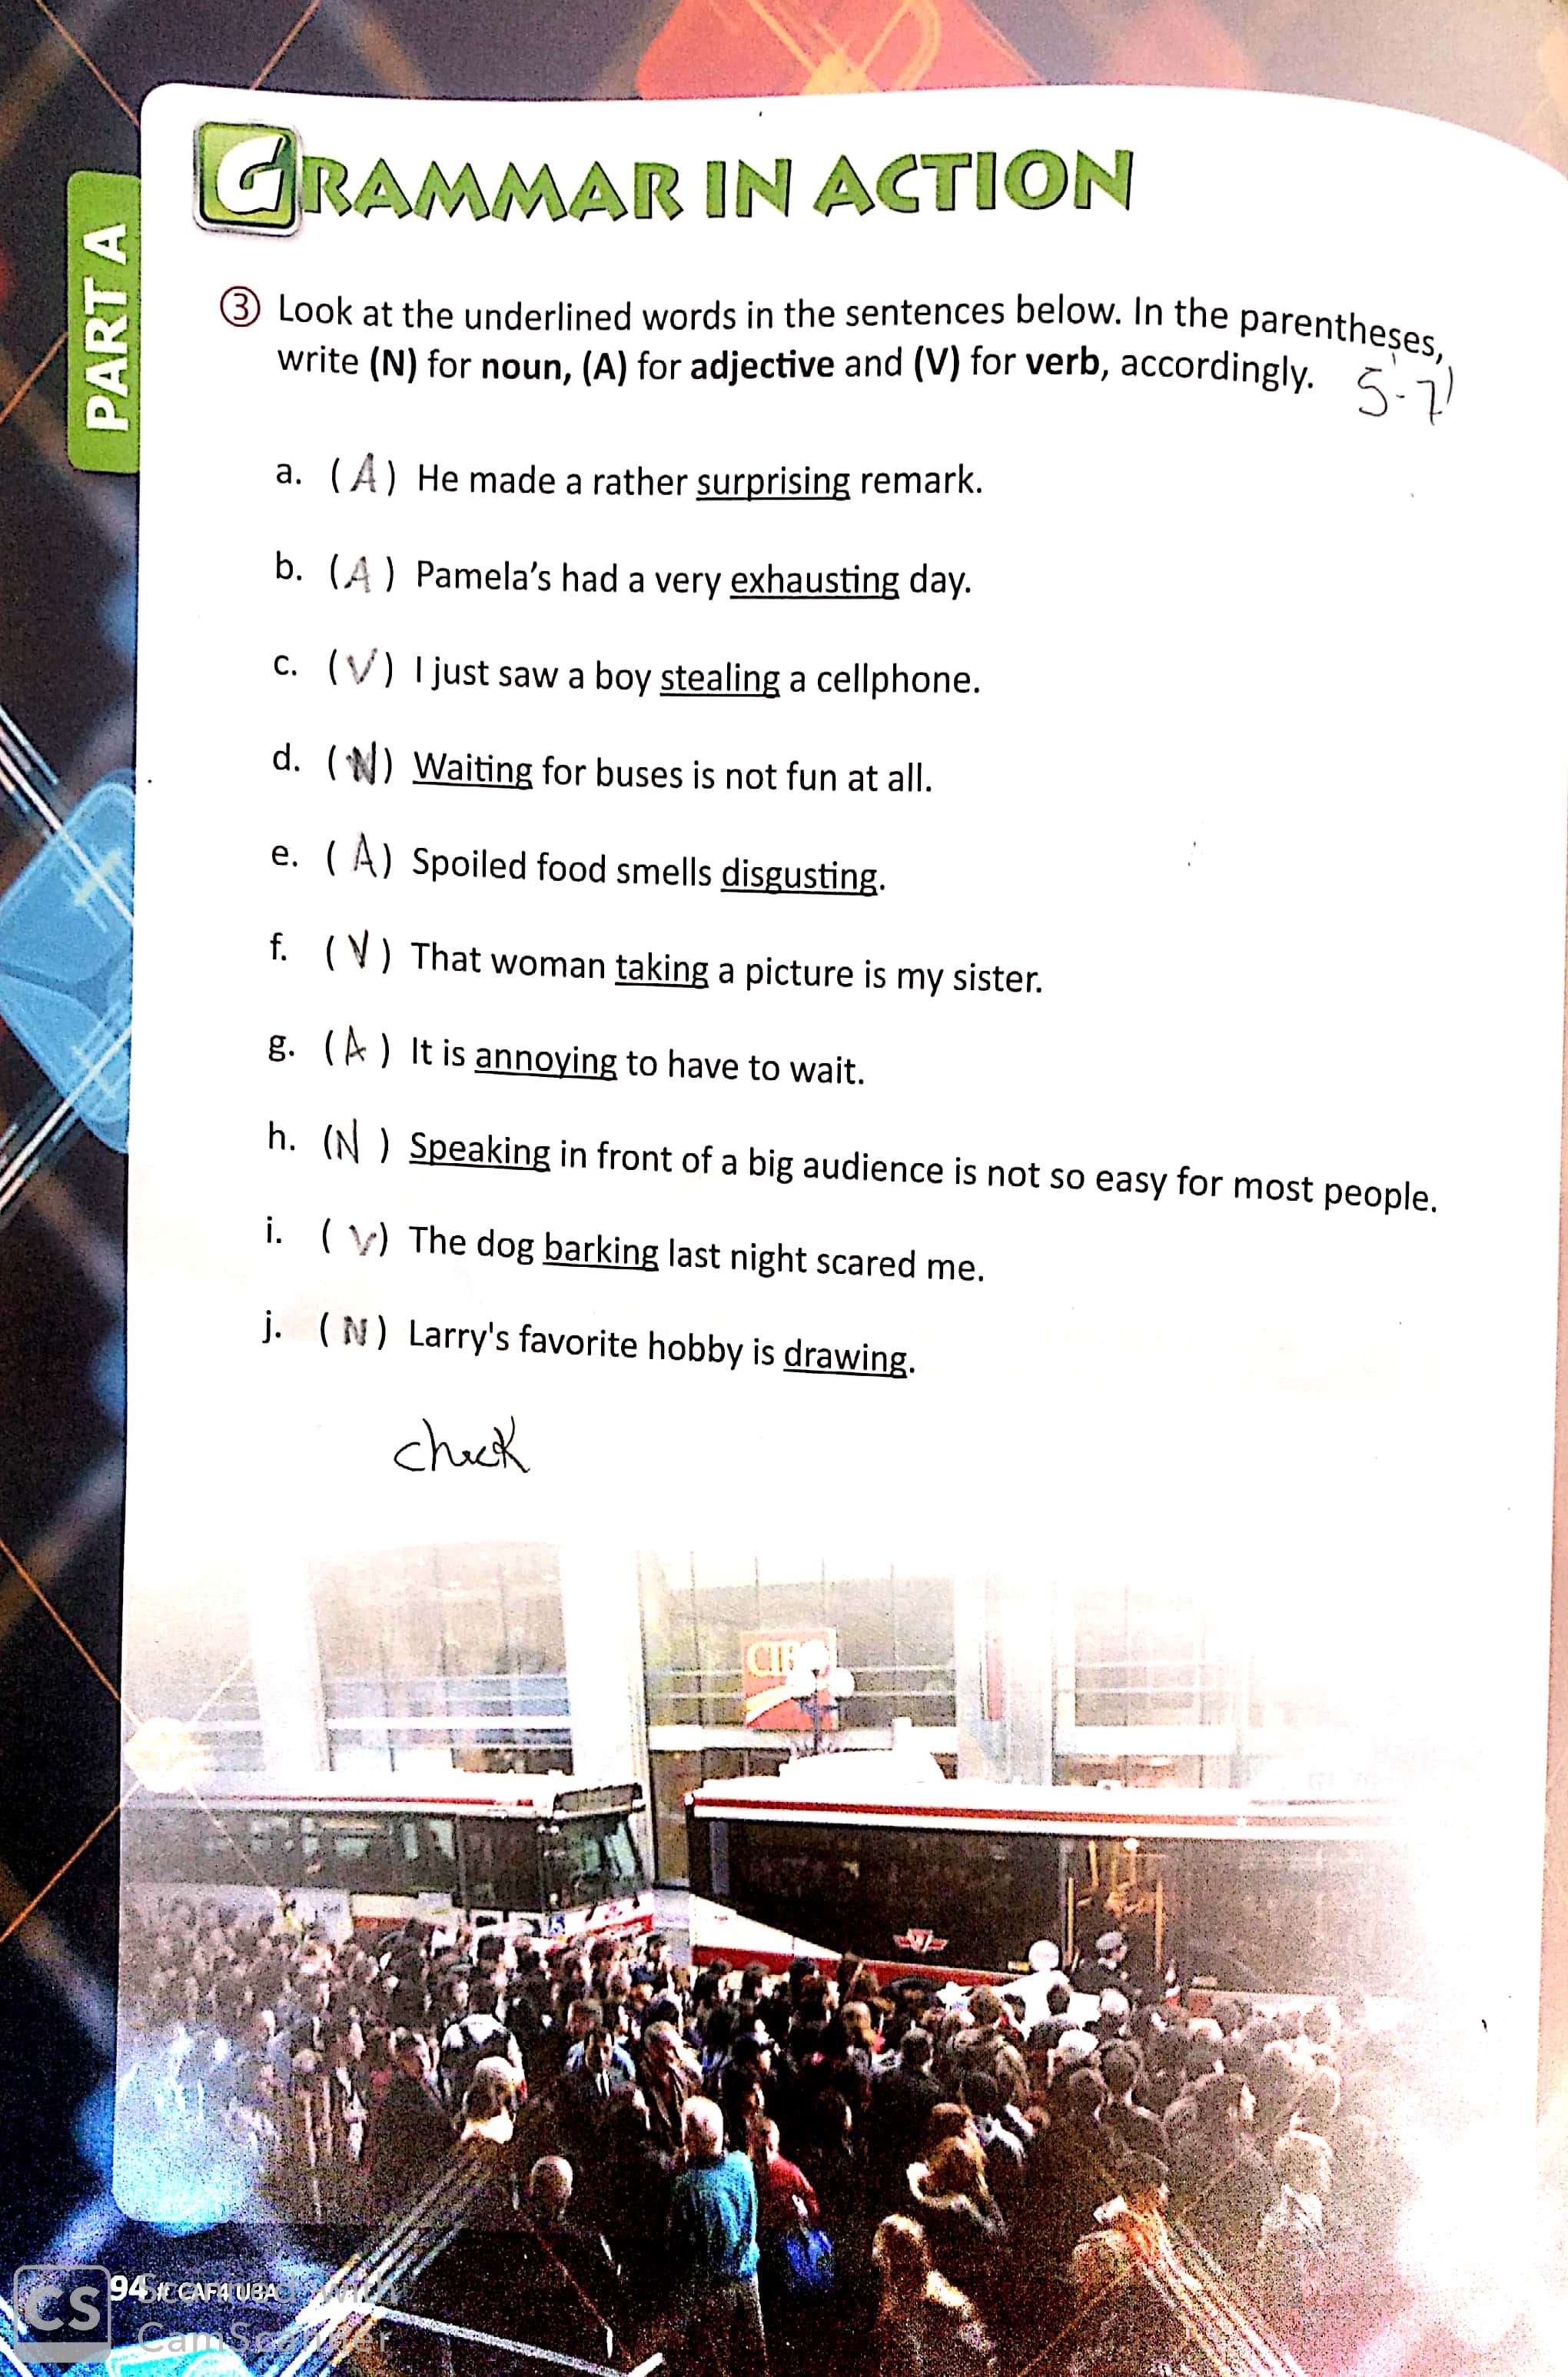 GRAMMAR IN ACTION
PART A
③ Look at the underlined words in the sentences below. In the parentheses,
write (N) for noun, (A) for adjective and (V) for verb, accordingly.
5-7'
a. (A) He made a rather surprising remark.
b. (A) Pamela's had a very exhausting day.
c. (V) I just saw a boy stealing a cellphone.
d. (N) Waiting for buses is not fun at all.
e. (A) Spoiled food smells disgusting.
f. (V) That woman taking a picture is my sister.
g. (A) It is annoying to have to wait.
h. (N) Speaking in front of a big audience is not so easy for most people.
i. (V) The dog barking last night scared me.
j. (N) Larry's favorite hobby is drawing.
check
94 it CAF4 U3A
CS
Scanned with
CamScanner